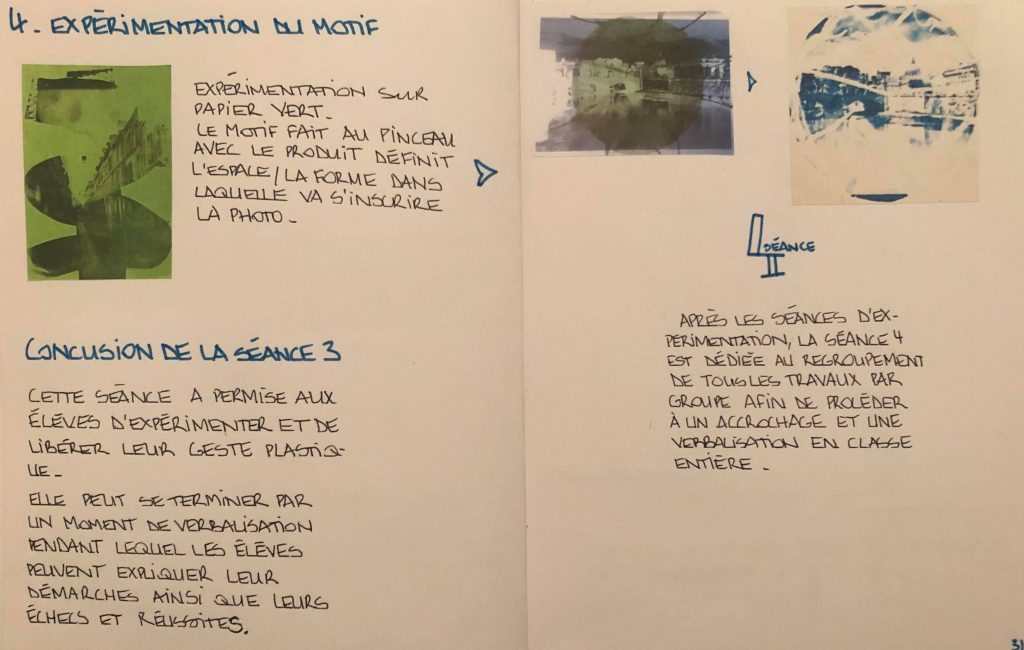 4. EXPÉRIMENTATION DU MOTIF
EXPÉRIMENTATION SUR
PAPIER VERT.
LE MOTIF FAIT AU PINCEAU
AVEC LE PRODUIT DÉFINIT
L'ESPACE / LA FORME DANS
LAQUELLE VA S'INSCRIRE
LA PHOTO.
CONCUSION DE LA SÉANCE 3
CETTE SÉANCE A PERMISE AUX
ÉLÉVES D'EXPÉRIMENTER ET DE
LIBÉRER LEUR GESTE PLASTIQ-
UE.
ELLE PEUT SE TERMINER PAR
UN MOMENT DE VERBALISATION
PENDANT LEQUEL LES ÉLÉVES
PEUVENT EXPLIQUER LEUR
DÉMARCHES AINSI QUE LEURS
ÉCHECS ET RÉUSSITES.
SÉANCE
4
APRÈS LES SÉANCES D'EX-
PERIMENTATION, LA SÉANCE 4
EST DÉDIÉE AU REGROUPEMENT
DE TOUS LES TRAVAUX PAR
GROUPE AFIN DE PROCÉDER
À UN ACCROCHAGE ET UNE
VERBALISATION EN CLASSE
ENTIÈRE.
31